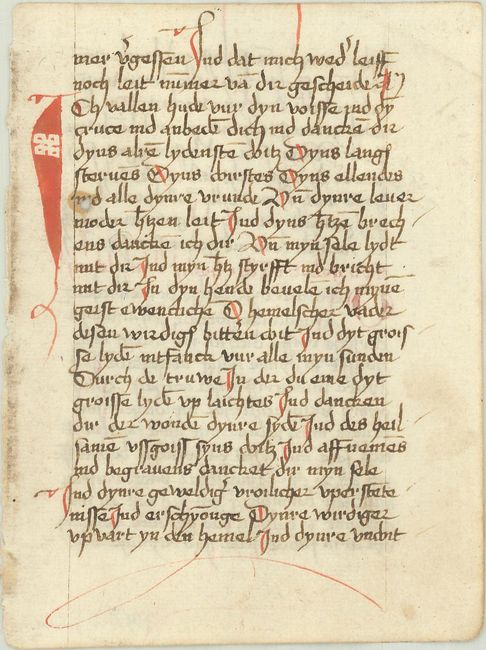 mer v̓gessen̄ Jnd dat mich wed̓ leiff
noch leit nūmer vā dir gescheide
Jch vallen hude vur dyn voisse ind dȳ
cruce ind anbedē dich ind danckē dir
dyns alrē lydenstē doitz Dyns langs
sterues Dyns doirstes Dyns ellendes
alle dynre vrunde Vn̄ dynre leuer
moder h̄tzen leit Jnd dyns h̄tzē brech
ens danckē ich dir Vn̄ myn sele lydt
mit dir Jnd myn h̄tz styrfft ind bricht
mit dir Jn dyn hende beuelē ich mynē
geist ewenclichē O hemelscher vader
desen wirdigē bitterē doit Jnd dyt grois
se lydē intfanck vur alle myn sunden
Durch de truwe Jn der du eme dyt
groisse lydē vp laichtes Jnd dancken
dir der wondē dynre sydē Jnd des heil
samē vssgoiss syns doitz Jnd affnemēs
ind begrauens dancket dir myn sele
Jnd dynre geweldig̓ vrolicher vperstete
nisse Jnd erschynonge Dynre wirdiger
vpvart yn den hemel Jnd dynre